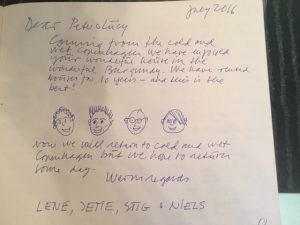 July 2016
Dear Peter & Lucy
Coming from the cold and
wet Copenhagen we have enjoyed
your wonderful house in the
wonderful Burgundy. We have rented
houses for 10 years - and this is the
best!
Now we will return to cold and wet
Copenhagen but we hope to return
some day.
Warm regards
LENE, JETTE, STIG & NIELS